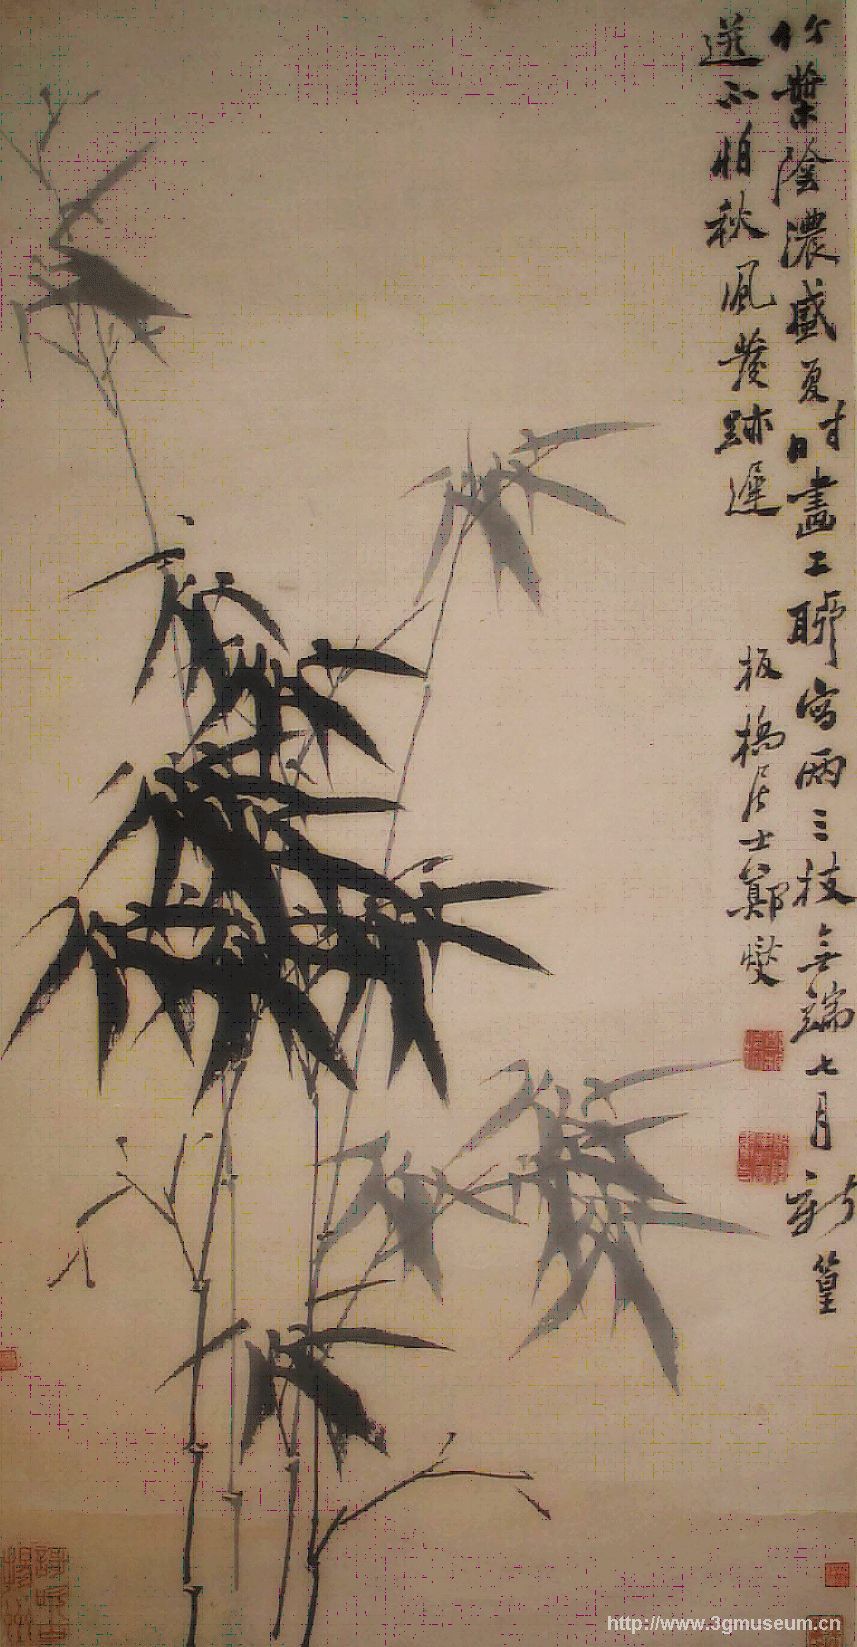 竹葉陰濃盛夏時畫工聊寫兩三枝無端七月新篁
迸不怕秋風發跡遲
板橋居士鄭燮
http://www.3gmuseum.cn